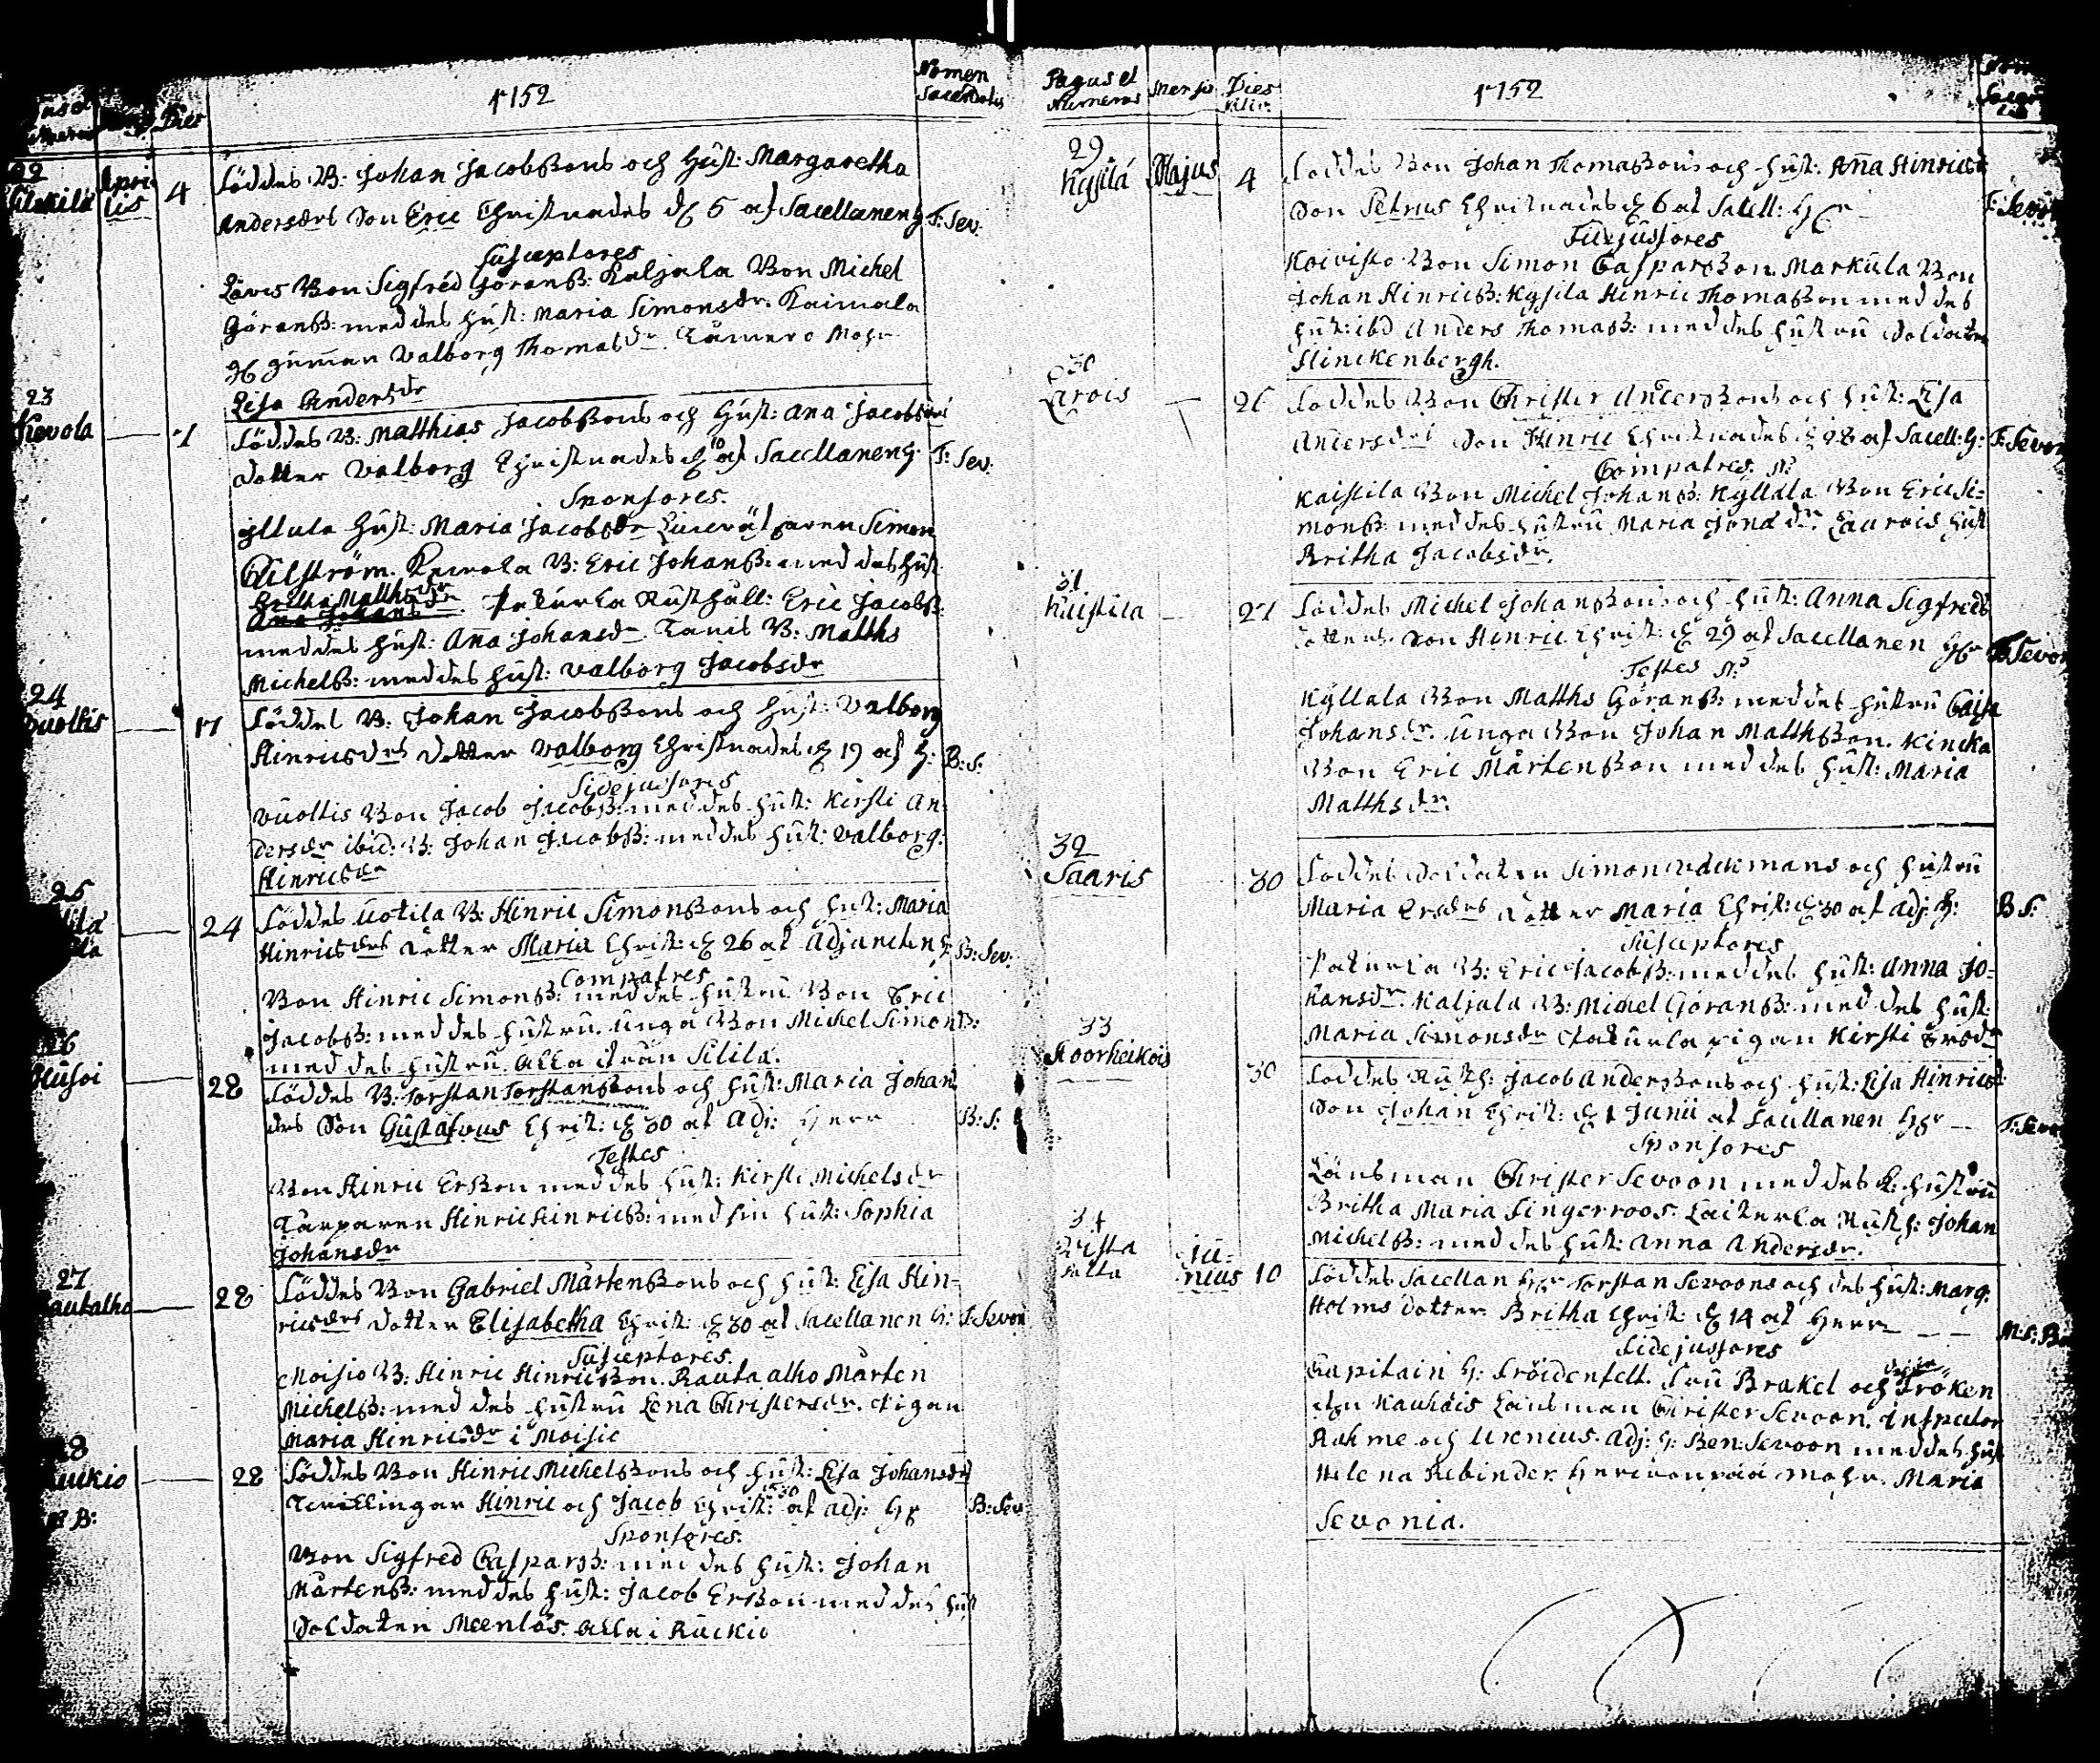 1752
Nomen
Sacerdotis
Dies
22
Apri
lis
4
Föddes B: Johan Jacobßons och hust: Margaretha
Andersdrs Son Eric Christnades d 5 af Sacellanen H: T: Sev:
Susceptores
Bon Sigfred Göranß: Kaljala Bon Michel
Göranß: med des hust: Maria Simonsdr. Kaimala
Valborg Thomasdr
Lisa Andersdr
23
7
Föddes B: Matthias Jacobßons och hust: Ana Jacobsdrs
dotter Valborg Christnades d 10 af Sacellanen H. T: Sev:
Sponsores.
hust: Maria Jacobsdr Simon
B: Eric Johanß: med des hust
Britha Matthsdr
Rusthåll: Eric Jacobß:
med des hust: Ana Johansdr B: Matths
Michelß: med des hust: Valborg Jacobsdr
24
Vuoltis
17
Föddes B: Johan Jacobßons och hust: Valborg
Hinricsdrs dotter Valborg Christnades d 19 af H: B: S:
Fidejussores
Vuoltis Bon Jacob Jacobß: med des hust: Kirsti An
dersdr ibid: B: Johan Jacobß: med des hust: Valborg
Hinricsdr
25
24
Föddes Uotila B: Hinric Simonßons och hust: Maria
Hinricsdrs dotter Maria Christ: d 26 af Adjuncten H B: Sev:
Compatres
Bon Hinric Simonß: med des hustru Bon Eric
Jacobß: med des hustru. Unga Bon Michel Simonß:
med des hustru. Alla ifrån Silila.
26
28
Föddes B: Torstan Torstanßons och hust: Maria Johans
drs Son Gustafvus Christ: d 30 af Adj: Herr B: S:
Testes
Bon Hinric Erßon med des hust: Kirsti Michelsdr
Torparen Hinric Hinricß: med sin hust: Sophia
Johansdr
27
28
Föddes Bon Gabriel Mårtenßons och hust: Lisa Hin-
ricsdrs dotter Elisabetha Christ: d 30 af Sacellanen H: T: Sevon
Susceptores.
Moisio B: Hinric Hinricßon. Rauta alho Mårten
Michelß: med des hustru Lena Christersdr. Pigan
Maria Hinricsdr i Moisio
28
Ruckio
28
Föddes Bon Hinric Michelßons och hust: Lisa Johansdrs
Tvillingar Hinric och Jacob Christ: d 30 af adj: H B: Sev
Sponsores.
Bon Sigfred Casparß: med des hust: Johan
Mårtenß: med des hust: Jacob Erßon med des hust
Soldaten Meenlös. Alla i Ruckio
Pagus et
Numerus
Mensis
Dies
1752
29
Kysilä
Majus
4
Föddes Bon Johan Thomaßons och hust: Anna Hinricsdr
Son Petrus Christnades d 6 af Sacell: Hr T: Sevon
Fidejussores
Koivisto Bon Simon Casparßon. Markula Bon
Johan Hinricß: Kysila Hinric Thomaßon med des
hust: ibd Anders Thomaß: med des hustru Soldaten
Hinckenbergh.
30
26
Föddes Bon Christer Anderßons och hust: Lisa
Andersdrs Son Hinric Christnades d 28 af Sacell: H: T: Sevon
Compatres.
Kaistila Bon Michel Johanß: Kyllälä Bon Eric Si-
monß: med des hustru Maria hust
Britha Jacobsdr.
31
27
Föddes Michel Johanßons och hust: Anna Sigfreds
dotters Son Hinric Christ: d 29 af Sacellanen Hr T: Sevon
Testes
Kyllala Bon Matths Göranß: med des hustru Caisa
Johansdr. Unga Bon Johan Matthßon. Kincka
Bon Eric Mårtenßon med des hust: Maria
Matthsdr.
32
Saaris
30
Föddes Soldaten Simon och hustru
Maria Ersdrs dotter Maria Christ: d 30 af Adj: H: B S:
Susceptores
B: Eric Jacobß: med des hust: Anna Jo-
hansdr. Kaljala B: Michel Göranß: med des hust:
Maria Simonsdr pigan Kirsti Ersdr
33
30
Föddes Rusth: Jacob Anderßons och hust: Lisa Hinricsd:
Son Johan Christ: d 1 Junii af Sacellanen Hr T: Sevon
Sponsores
Länsman Christer Sevoon med des k: hustru
Britha Maria Singerroos. Laiterla Rusth: Johan
Michelß: med des hust: Anna Andersdr.
34
Ju-
nius
10
Föddes Sacellan Hr Torstan Sevoons och des hust: Marg:
Holms dotter Britha Christ d 14 af Herr
Fidejussores
Capitain H: Fröidenfelt. Fru Brakel och Fröken
Länsman Christer Sevoon. Inspector
Rahme och Urenius. Adj: H: Ben: Sevoon med des hust
Helena Rebinder. Maria
Sevonia.